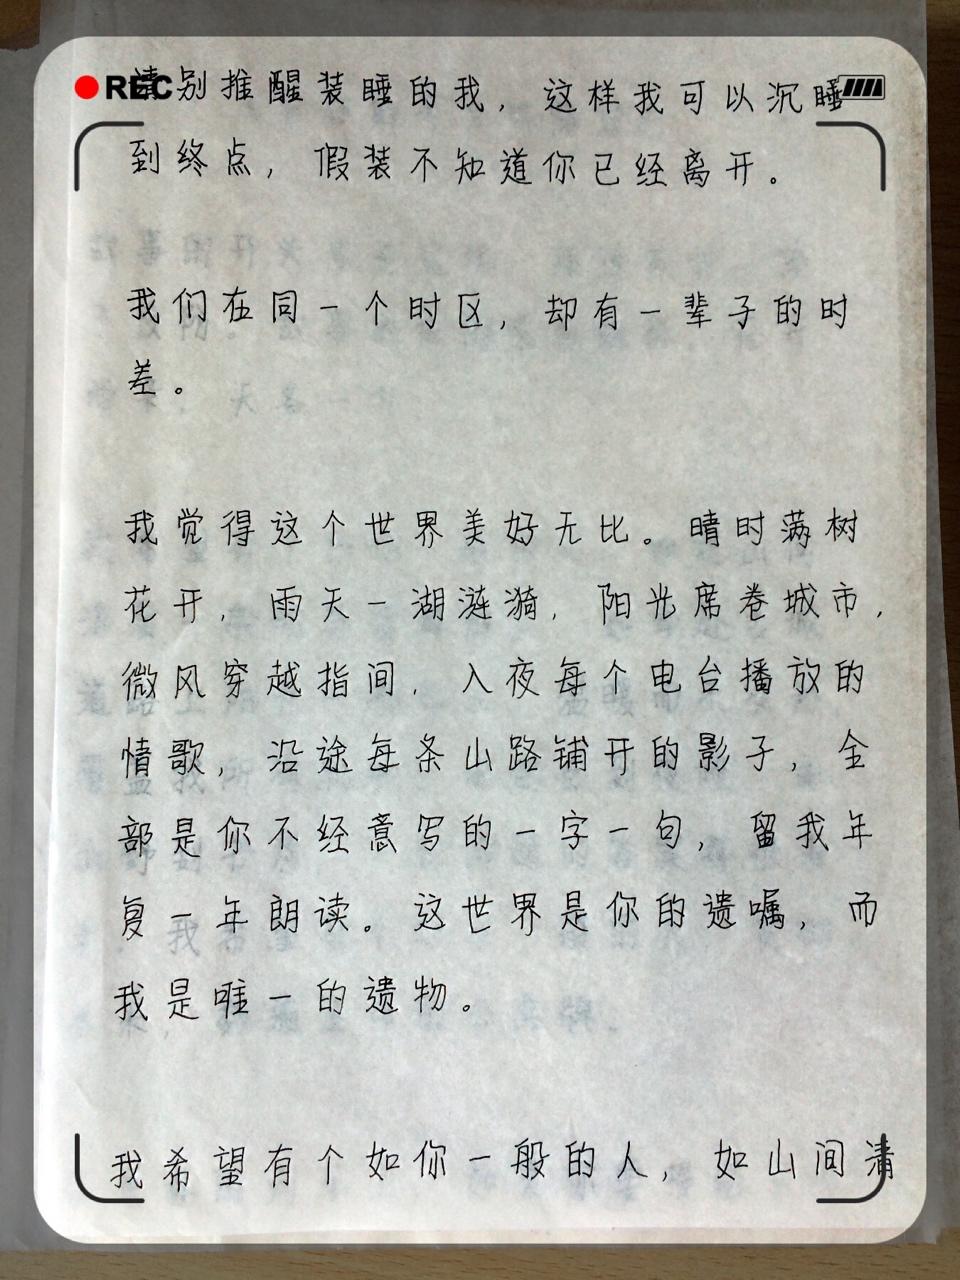 REC
请别推醒装睡的我，这样我可以沉睡
到终点，假装不知道你已经离开。
我们在同一个时区，却有一辈子的时
差。
我觉得这个世界美好无比。晴时满树
花开，雨天一湖涟漪，阳光席卷城市，
微风穿越指间，入夜每个电台播放的
情歌，沿途每条山路铺开的影子，全
部是你不经意写的一字一句，留我年
复一年朗读。这世界是你的遗嘱，而
我是唯一的遗物。
我希望有个如你一般的人，如山间清